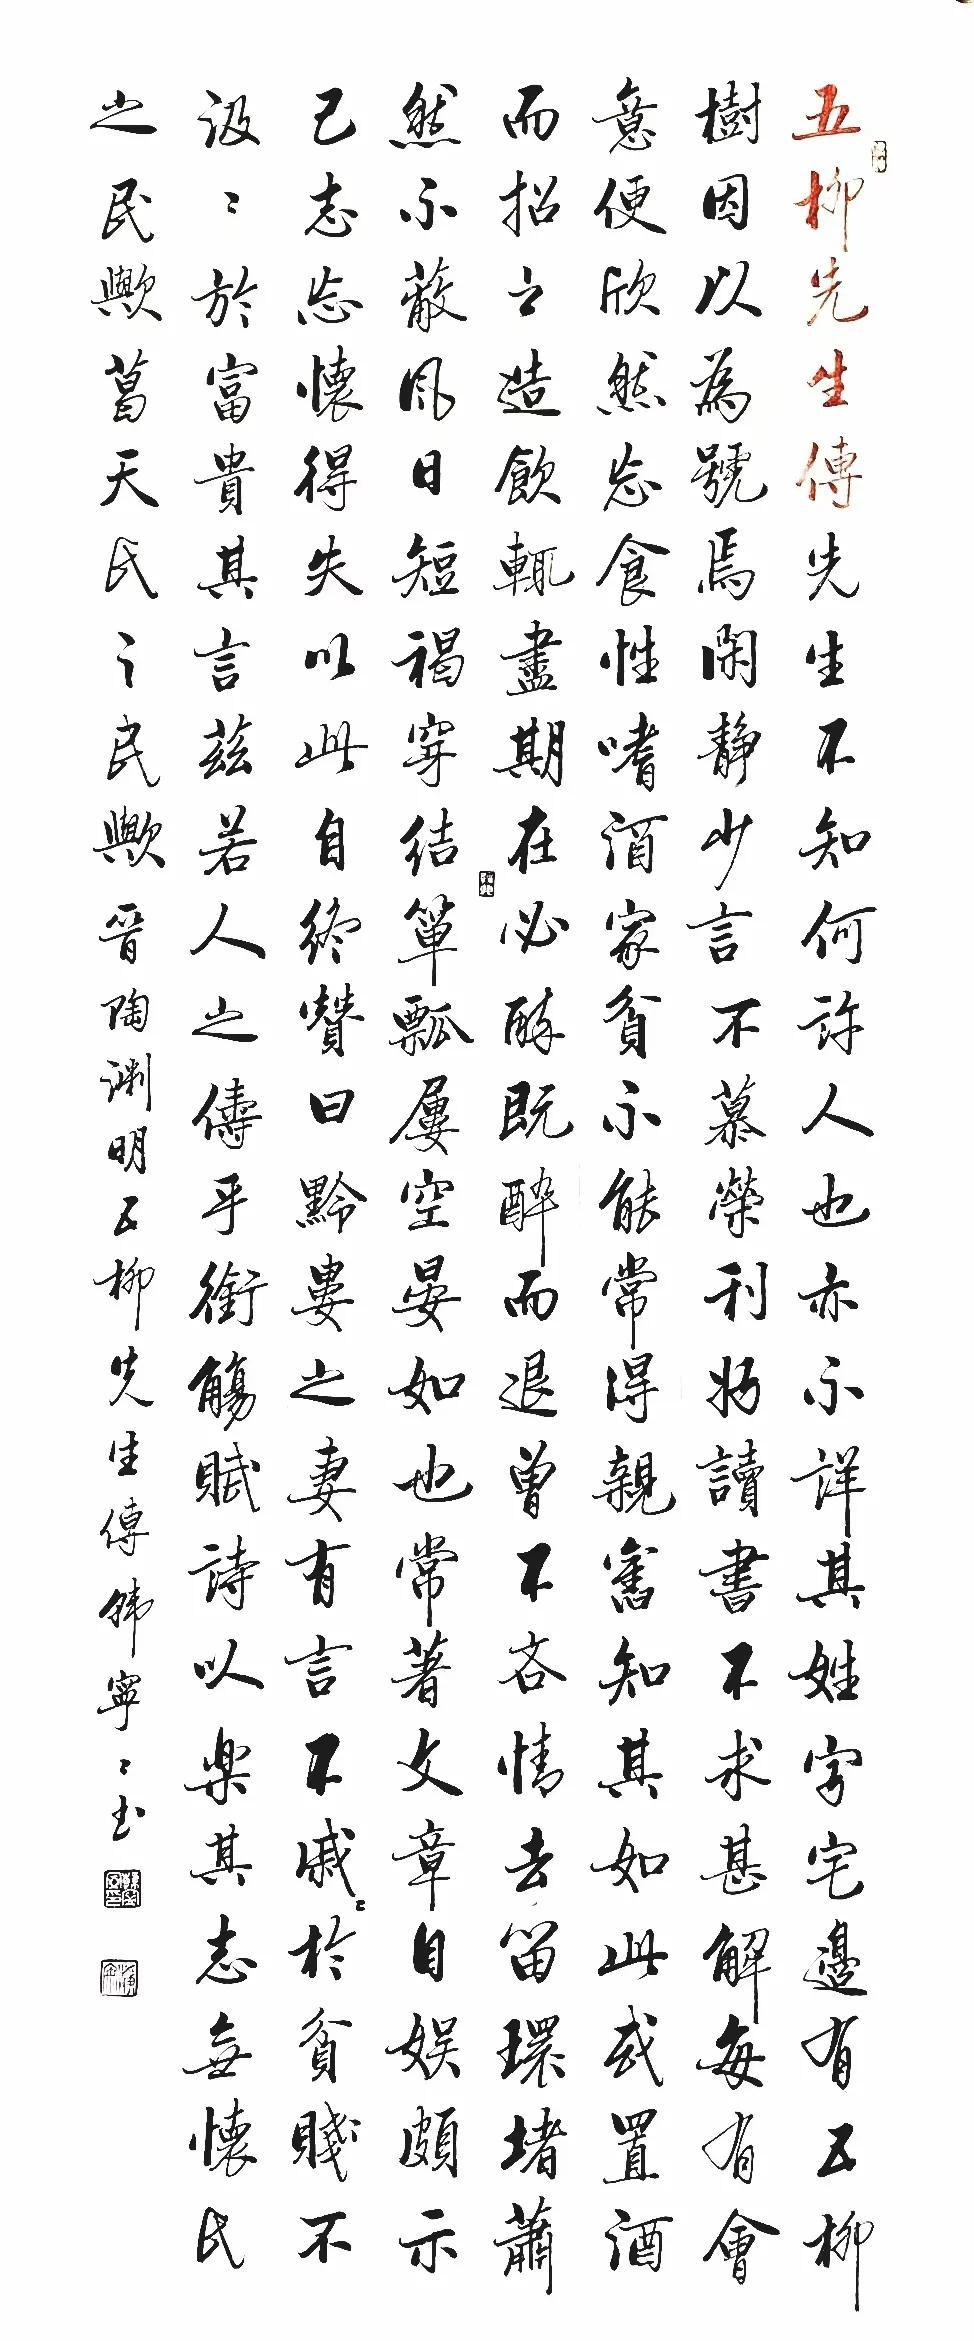 五柳先生傳先生不知何許人也亦不詳其姓字宅邊有五柳
樹因以為號焉閑靜少言不慕榮利好讀書不求甚解每有會
意便欣然忘食性嗜酒家貧不能常得親舊知其如此或置酒
而招之造飲輒盡期在必醉既醉而退曾不吝情去留環堵蕭
然不蔽風日短褐穿結簞瓢屢空晏如也常著文章自娛頗示
己志忘懷得失以此自終贊曰黔婁之妻有言不戚〻於貧賤不
汲〻於富貴其言茲若人之儔乎銜觴賦詩以楽其志無懷氏
之民歟葛天氏之民歟晉陶淵明五柳先生傳韓寧〻書